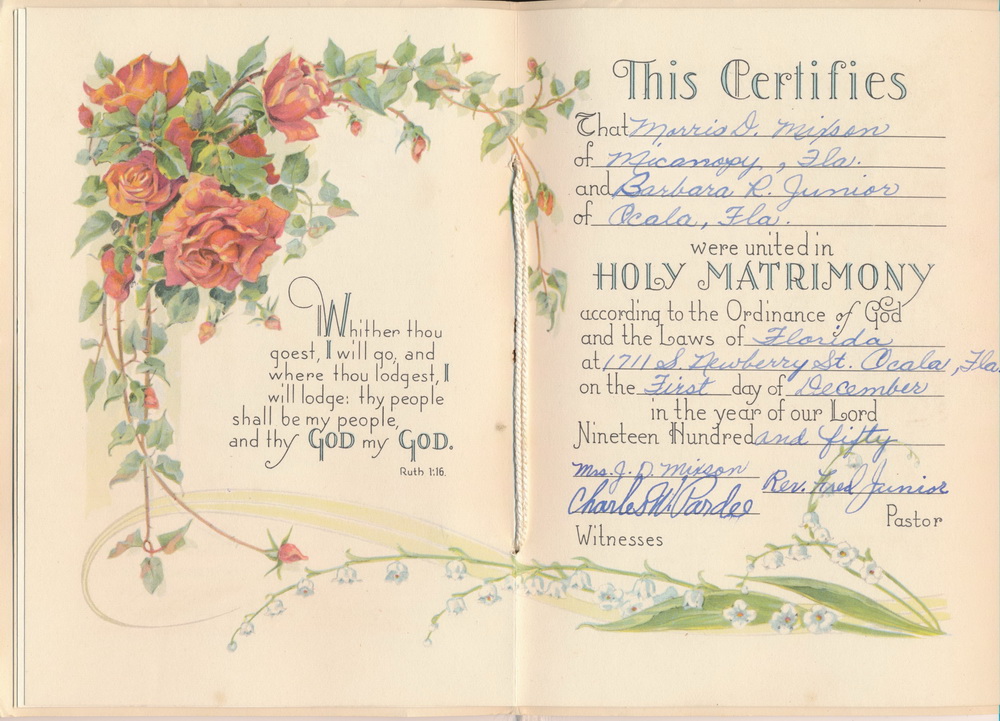 Whither thou
goest, I will go, and
where thou lodgest, I
will lodge: thy people
shall be my people,
and thy GOD my GOD.
Ruth 1:16.
This Certifies
That Morris D. Mixson
of Micanopy, Fla.
and Barbara R. Junior
of Ocala, Fla.
were united in
HOLY MATRIMONY
according to the Ordinance of God
and the Laws of Florida
at 1711 S. Newberry St. Ocala, Fla.
on the First day of December
in the year of our Lord
Nineteen Hundred and fifty
Mrs. J. D. Mixson
Rev. Fred Junior
Charles W. Pardee
Pastor
Witnesses